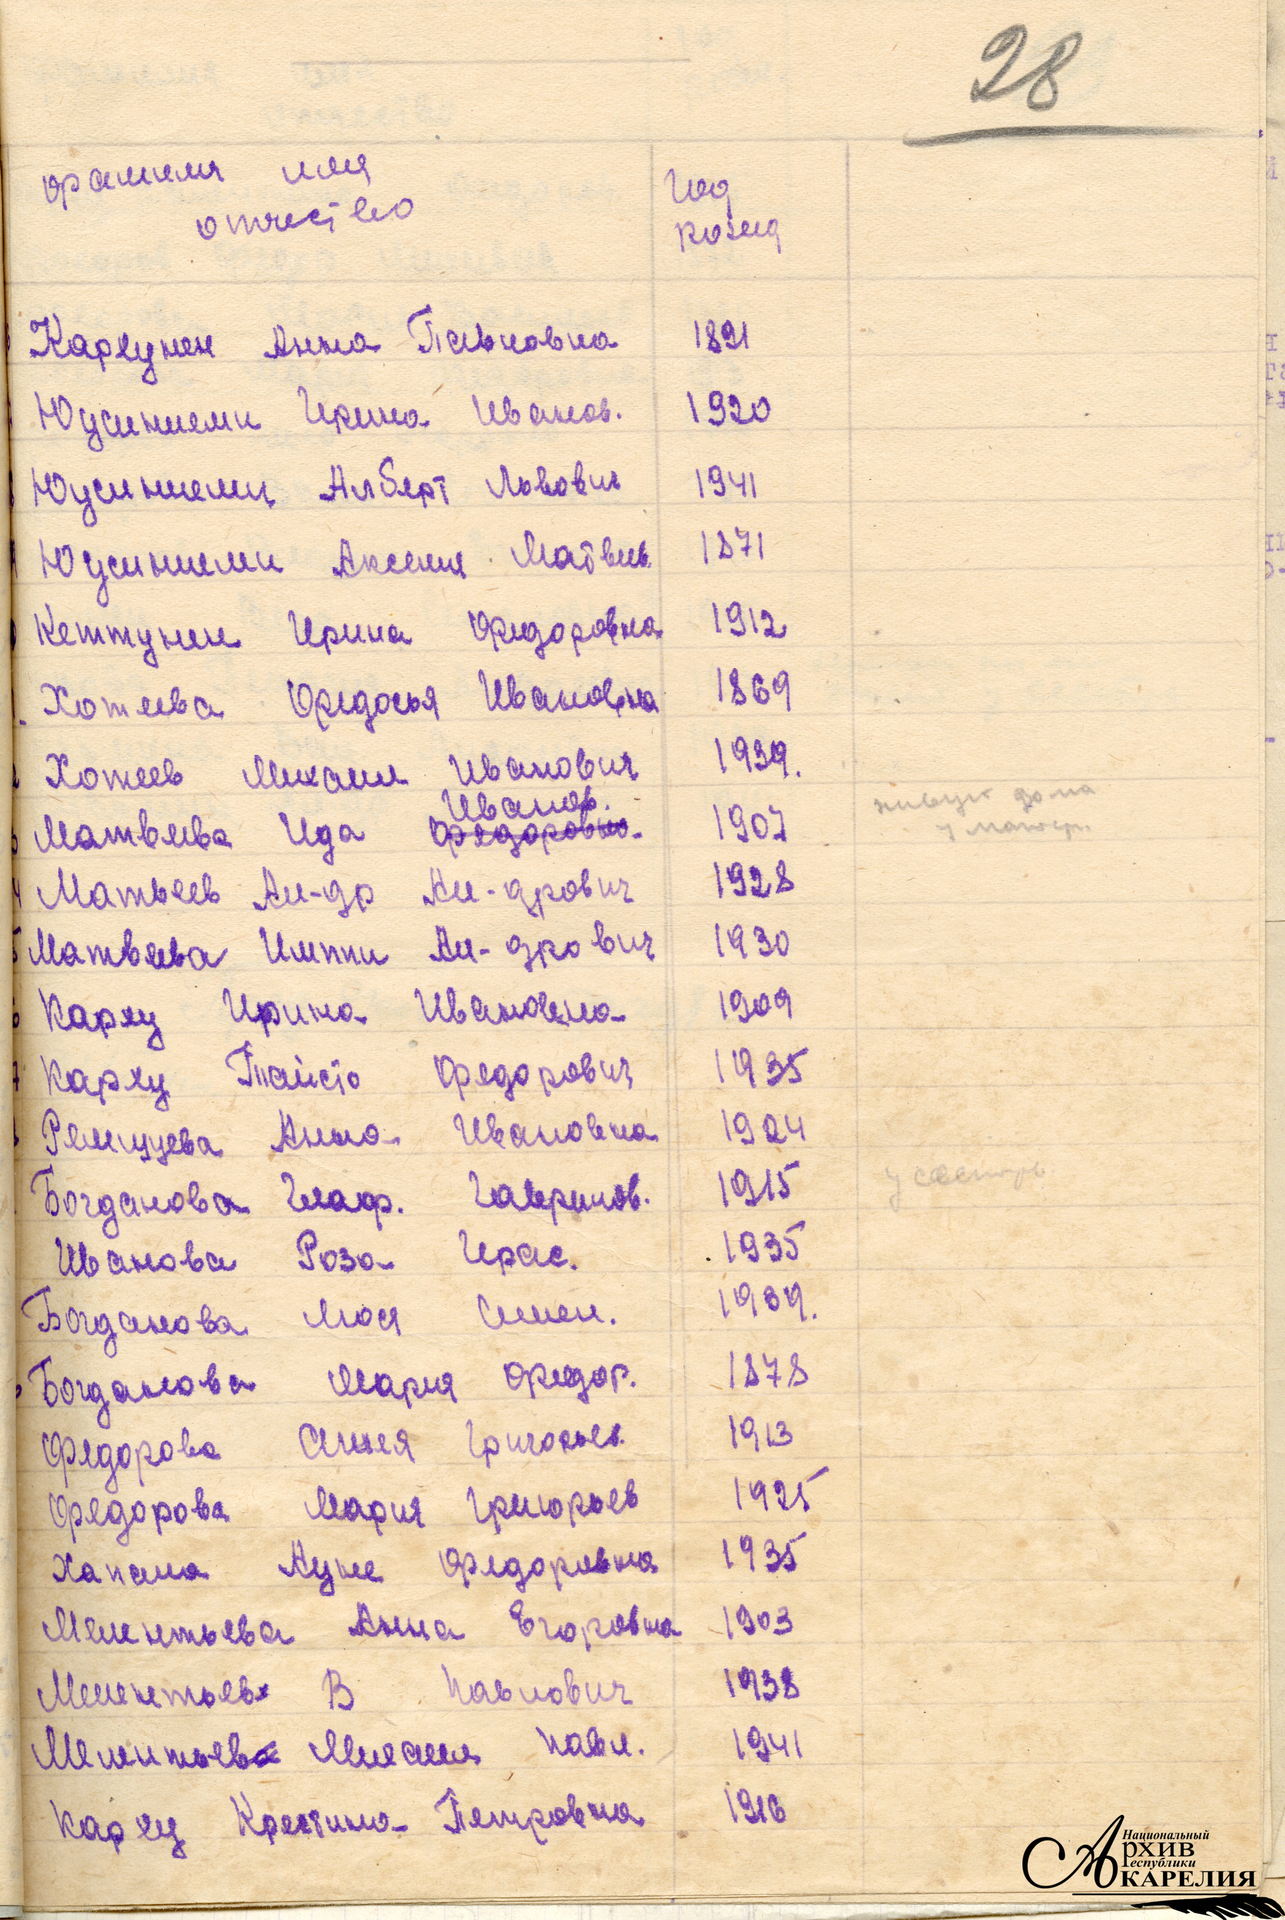 28
фамилия имя Год
отчество рожд
Кархунен Анна Павловна 1891
Юусиниеми Ирина Иванов. 1920
Юусиниеми Алберт Львович 1941
Юусиниеми Аксения Матвеев. 1871
Кеттунен Ирина Федоровна 1912
Хотеева Федосья Ивановна 1869
Хотеев Михаил Иванович 1939.
Иванов.
Матвеева Ида Федоровна 1907 живут дома
у матер.
Матвеев Ал-др Ал-дрович 1928
Матвеева Импи Ал-дрович 1930
Карху Ирина Ивановна 1909
Карху Тайсто Федорович 1935
Ремшуева Анна Ивановна 1924
Богданова Глаф. Гаврилов. 1915 у сестры
Иванова Роза Ирас. 1935
Богданова Люся Семен. 1939.
Богданова Мария Федор. 1878
Федорова Григорьев. 1913
Федорова Мария Григорьев 1925
Хапала Ауне Федоровна 1935
Мелентьева Анна Егоровна 1903
Мелентьев В Павлович 1938
Мелентьев Михаил Павл. 1941
Карху Крестина Петровна 1916
Национальный
Архив
Республики
Карелия